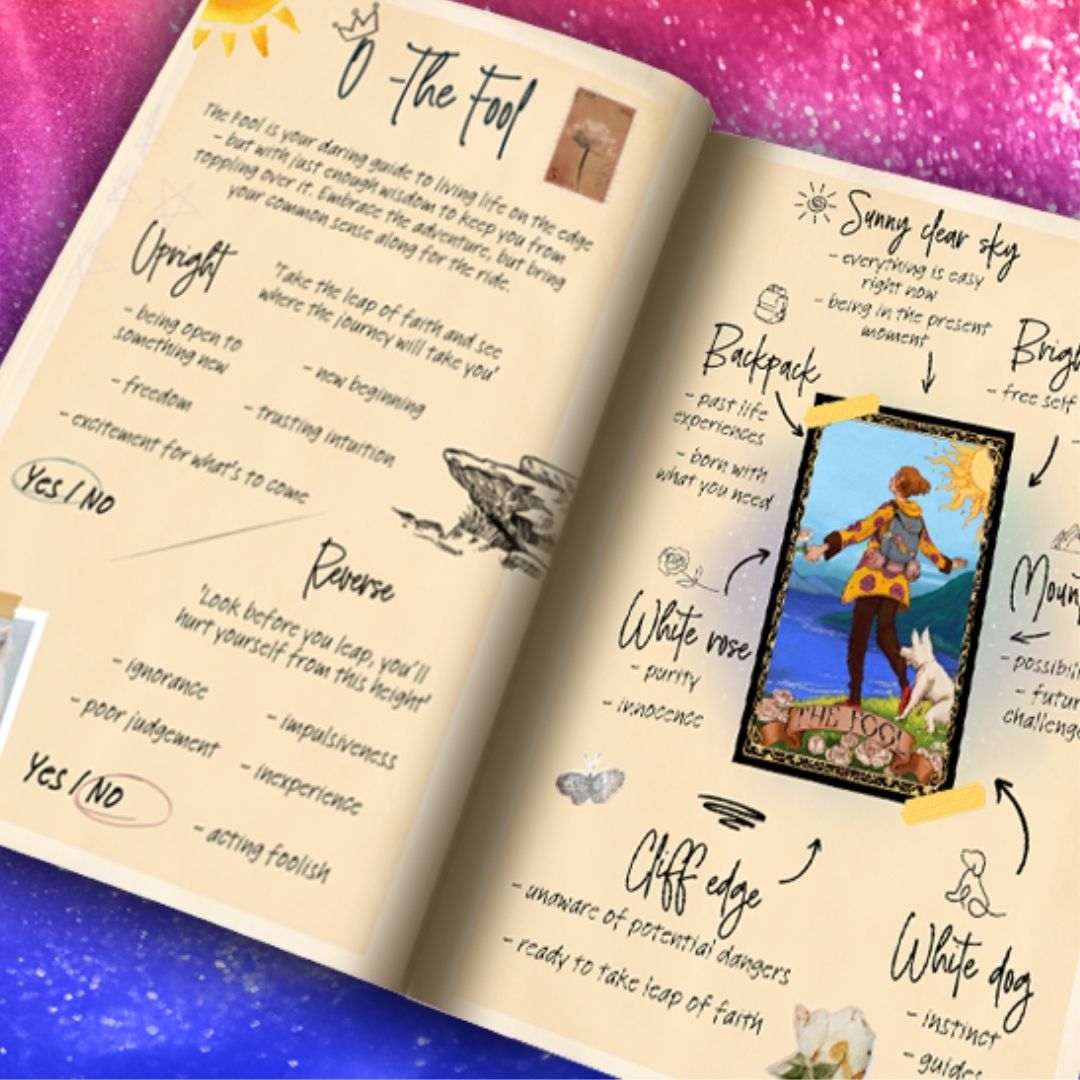 0 - The Fool
The Fool is your daring guide to living life on the edge
- but with just enough wisdom to keep you from
toppling over it. Embrace the adventure, but bring
your common sense along for the ride.
Upright
'Take the leap of faith and see
where the journey will take you'
- being open to
something new
- new beginning
- freedom
- trusting intuition
- excitement for what's to come
Yes / No
Reverse
'Look before you leap, you'll
hurt yourself from this height'
- ignorance
- impulsiveness
- poor judgement
- inexperience
Yes / No
- acting foolish
Sunny clear sky
- everything is easy
right now
- being in the present
moment
Backpack
- past life
experiences
- born with
what you need
- free self
White rose
- purity
- innocence
THE FOOL
Cliff edge
- unaware of potential dangers
- ready to take leap of faith
White dog
- instinct